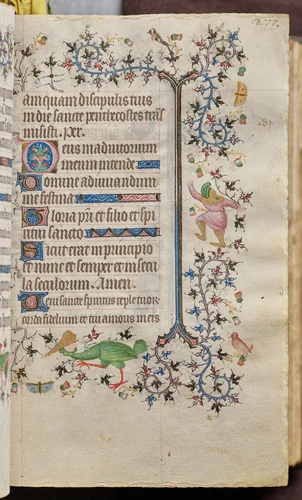 amquam discipulis tuis
in die sancte penthecostes tras
misisti. per.
Deus in adiutorium
meum intende
Domine ad iuuandum
me festina
Gloria pri et filio et spi
ritui sancto
Sicut erat in principio
et nunc et semper et in secu
la seculorum. Amen.
Ueni sancte spiritus reple tuor
corda fidelium et tui amoris in eis
281